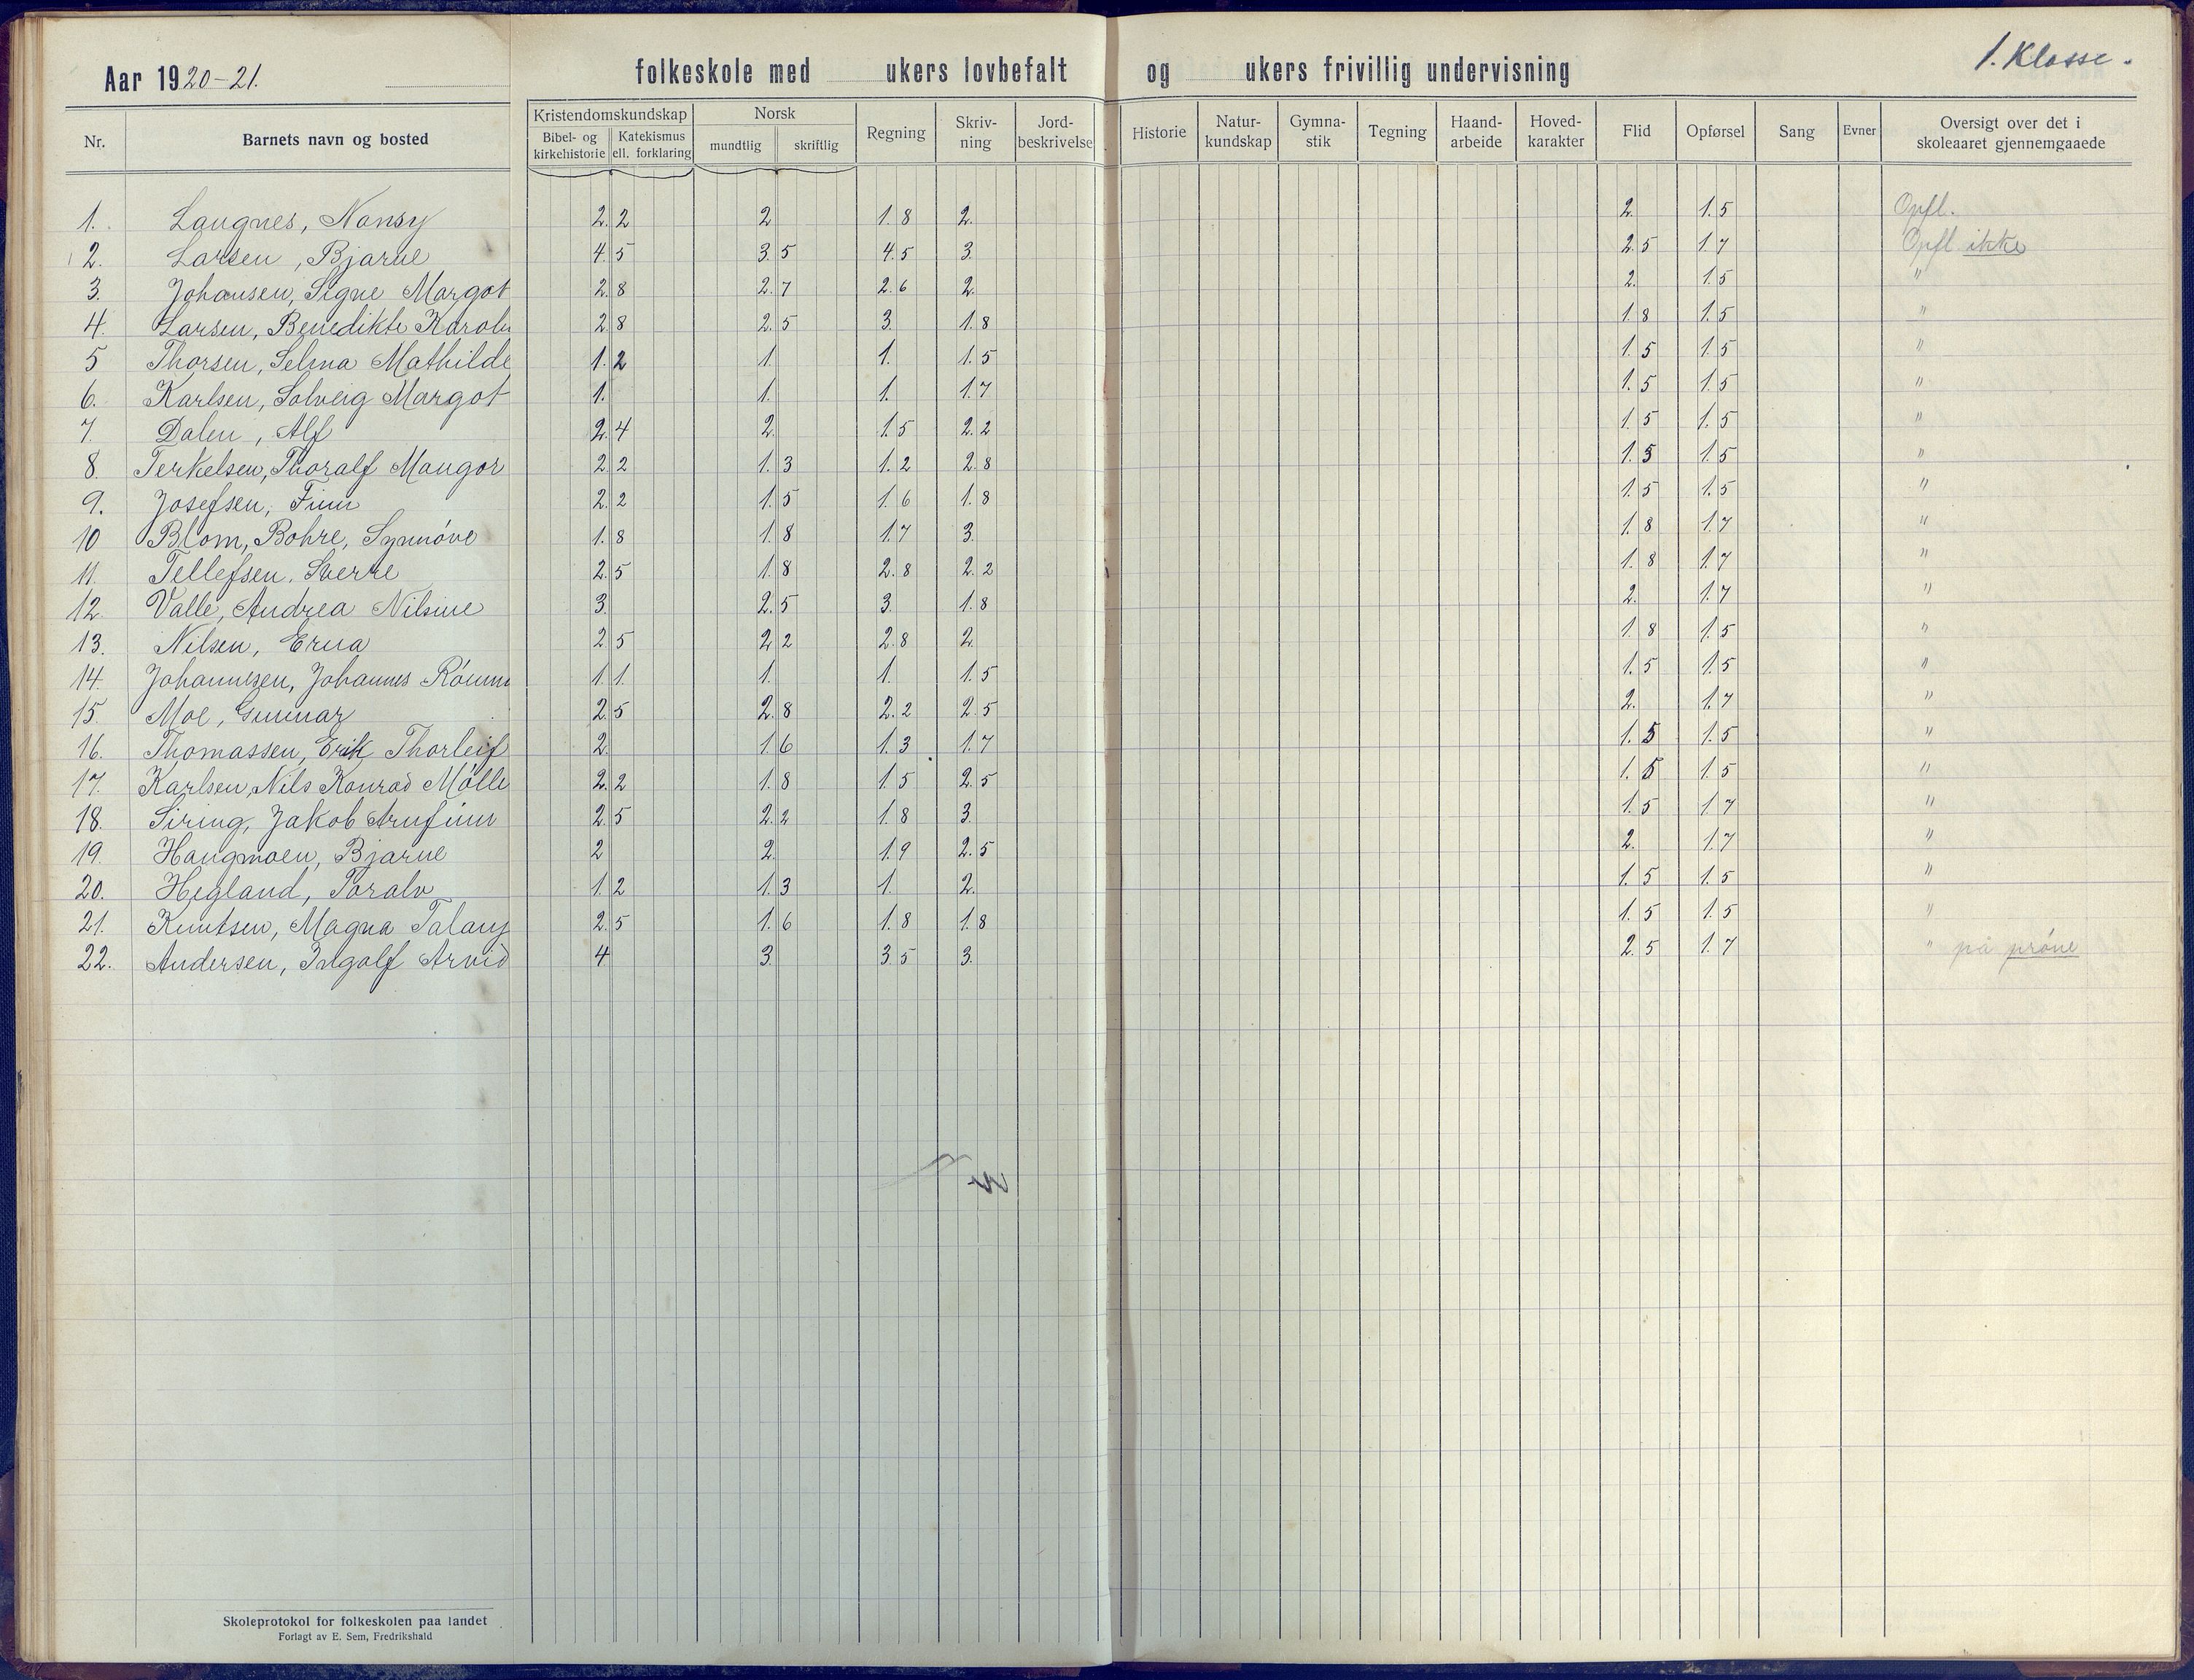 Aar 1920-21. folkeskole med ukers lovbefalt og ukers frivillig undervisning 1. Klasse.
Nr. Barnets navn og bosted Kristendomskundskap Bibel- og kirkehistorie Katekismus ell. forklaring Norsk mundtlig skriftlig Regning Skriv-ning Jord-beskrivelse Historie Natur-kundskap Gymna-stik Tegning Haand-arbeide Hoved-karakter Flid Opførsel Sang Evner Oversigt over det i skoleaaret gjennemgaaede
1. Laugnes, Nansy 2.2 2 1.8 2. 2. 1.5 Opfl.
2. Larsen, Bjarne 4.5 3.5 4.5 3. 2.5 1.7 Opfl ikke
3. Johansen, Signe Margot 2.8 2.7 2.6 2. 2. 1.5 "
4. Larsen, Benedikte Karolin 2.8 2.5 3. 1.8 1.8 1.5 "
5 Thorsen, Selma Mathilde 1.2 1. 1. 1.5 1.5 1.5 "
6. Karlsen, Solveig Margot 1. 1. 1. 1.7 1.5 1.5 "
7. Dalen, Alf 2.4 2. 1.5 2.2 1.5 1.5 "
8. Terkelsen, Thoralf Maugor 2.2 1.3 1.2 2.8 1.5 1.5 "
9. Josefsen, Finn 2.2 1.5 1.6 1.8 1.5 1.5 "
10 Blom, Bohre, Synnöve 1.8 1.8 1.7 3. 1.8 1.7 "
11. Tellefsen, Sverre 2.5 1.8 2.8 2.2 1.8 1.7 "
12. Valle, Andrea Nilsine 3. 2.5 3. 1.8 2. 1.7 "
13. Nilsen, Erna 2.5 2.2 2.8 2. 1.8 1.5 "
14. Johannesen, Johannes 1.1. 1. 1. 1.5 1.5 1.5 "
15. Moe, Gunnar 2.5 2.8 2.2 2.5 2. 1.7 "
16. Thomassen, Erik Thorleif 2. 1.6 1.3 1.7 1.5 1.5 "
17. Karlsen, Nils Konrad Mölle 2.2 1.8 1.5 2.5 1.5 1.5 "
18. Siring, Jakob Arnfinn 2.5 2.2 1.8 3. 1.5 1.7 "
19. Haugmoen, Bjarne 2 2. 1.9 2.5 2. 1.7 "
20. Hegland, Toralv 1.2 1.3 1. 2. 1.5 1.5 "
21. Knutsen, Magna 2.5 1.6 1.8 1.8 1.5 1.5 "
22. Andersen, Ingolf Arvid 4. 3. 3.5 3. 2.5 1.7 " på pröve
Skoleprotokol for folkeskolen paa landet
Forlagt av E. Sem, Fredrikshald